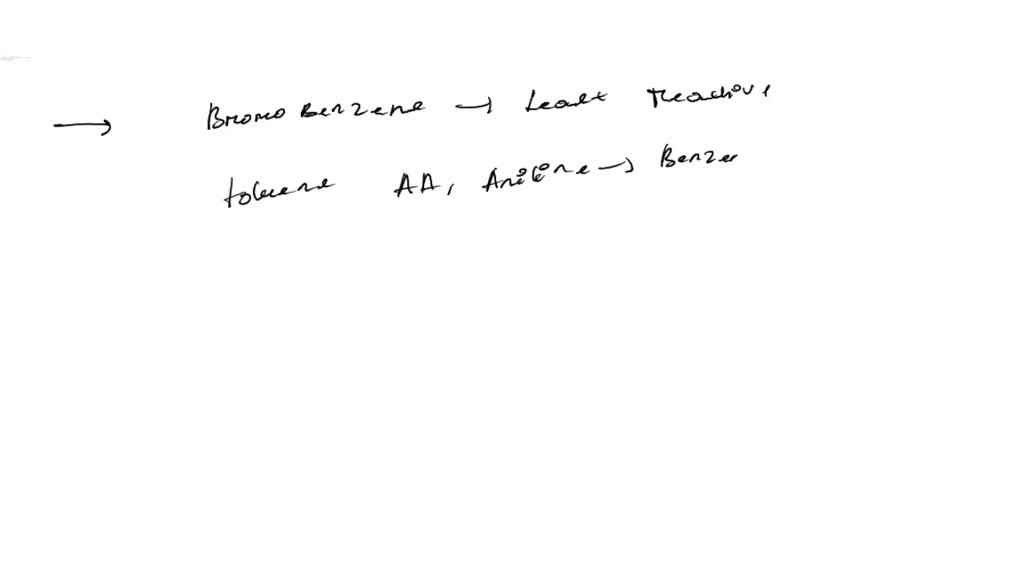 → Bromo Benzene → Least Reactive
toluene AA, Aniline → Benzen